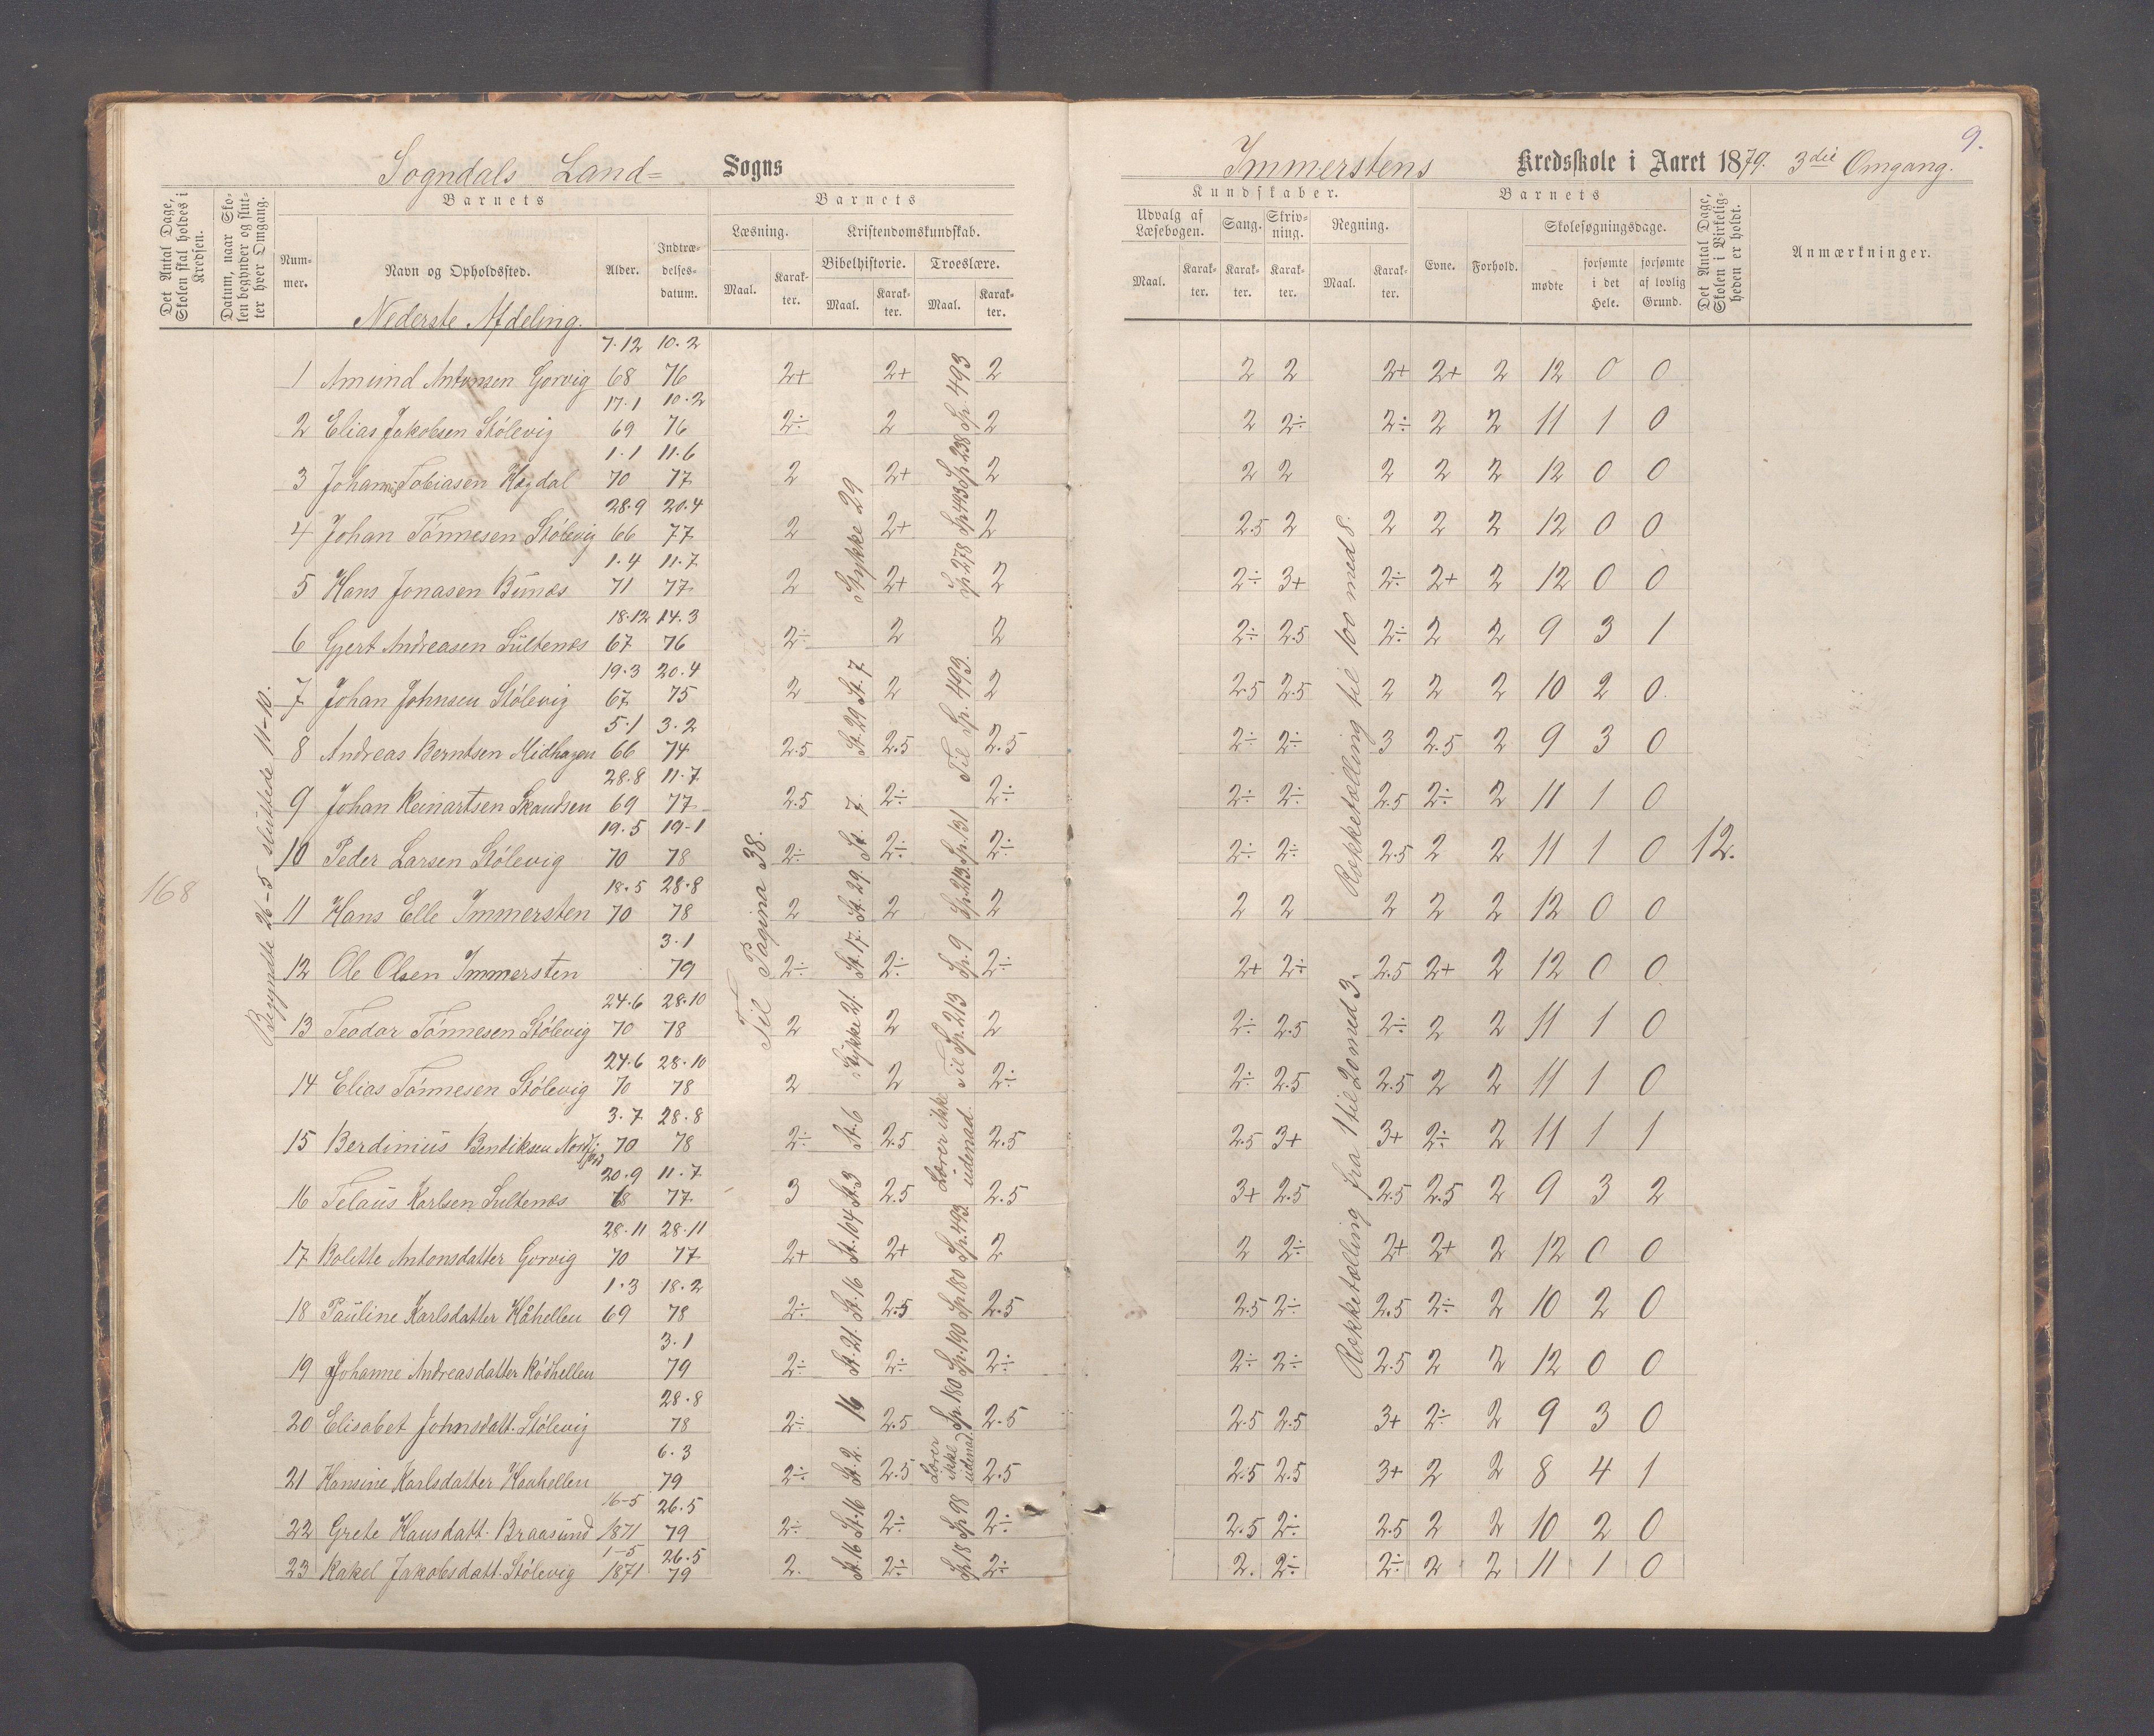 Sogndals Land= Sogns
Immerstens Kredsskole i Aaret 1879. 3die Omgang.
9.
Det Antal Dage, Skolen skal holdes i Kredsen.
Datum, naar Skolen begynder og slutter hver Omgang.
Barnets
Nummer.
Navn og Opholdssted.
Alder.
Indtrædelsesdatum.
Barnets
Læsning.
Maal.
Karakter.
Kristendomskundskab.
Bibelhistorie.
Maal.
Karakter.
Troeslære.
Maal.
Karakter.
Kundskaber.
Udvalg af Læsebogen.
Maal.
Karakter.
Sang.
Karakter.
Skrivning.
Karakter.
Regning.
Maal.
Karakter.
Barnets
Evne.
Forhold.
Skolesøgningsdage.
mødte
forsømte i det Hele.
forsømte af lovlig Grund.
Det Antal Dage, Skolen i Virkeligheden er holdt.
Anmærkninger.
Nederste Afdeling.
168
Begyndte 26-5 sluttede 11-10.
Til Pagina 38.
Rækketælling til 100 med 8.
Rækketælling fra 1 til 20 med 3.
12.
7.12 10.2
1 Amund Antonsen Gorvig 68 76 2+ 2+ 2 2 2 2+ 2+ 2 12 0 0
17.1 10.2
2 Elias Jakobsen Stólevig 69 76 2÷ 2 2 2 2÷ 2÷ 2 2 11 1 0
1.1 11.6
3 Johannes Tobiasen Høgdal 70 77 2 2+ 2 2 2 2 2 2 12 0 0
28.9 20.4
4 Johan Tónnesen Stólevig 66 77 2 2+ 2 2.5 2 2 2 2 12 0 0
1.4 11.7
5 Hans Jonasen Bunes 71 77 2 2+ 2 2÷ 3+ 2÷ 2+ 2 12 0 0
18.12 14.3
6 Gjert Andreasen Sultenes 67 76 2÷ 2 2 2÷ 2.5 2÷ 2 2 9 3 1
19.3 20.4
7 Johan Johnsen Stólevig 67 75 2 2 2 2.5 2.5 2 2 2 10 2 0
5.1 3.2
8 Andreas Berntsen Midhagen 66 74 2.5 2.5 2.5 2÷ 2÷ 3 2.5 2 9 3 0
28.8 11.7
9 Johan Reinartsen 69 77 2.5 2÷ 2÷ 2÷ 2÷ 2.5 2÷ 2 11 1 0
19.5 19-1
10 Peder Larsen Stólevig 70 78 2÷ 2÷ 2÷ 2÷ 2÷ 2.5 2 2 11 1 0
18.5 28.8
11 Hans Elle Immersten 70 78 2 2 2 2 2 2 2 2 12 0 0
3.1
12 Ole Olsen Immersten 79 2÷ 2÷ 2÷ 2+ 2÷ 2.5 2+ 2 12 0 0
24.6 28.10
13 Teodor Tónnesen Stólevig 70 78 2 2 2 2÷ 2.5 2÷ 2 2 11 1 0
24.6 28.10
14 Elias Tónnesen Stólevig 70 78 2 2 2÷ 2÷ 2.5 2.5 2 2 11 1 0
3.7 28.8
15 Berdinius Bendiksen 70 78 2÷ St. 6 2.5 2.5 2.5 3+ 3+ 2÷ 2 11 1 1
20.9 11.7
16 Telaus Karlsen Sultenes 68 77 3 St. 3 2.5 2.5 3+ 2.5 2.5 2.5 2 9 3 2
28.11 28.11
17 Bolette Antonsdatter Gorvig 70 77 2+ St. 104 2+ Sp. 493 2 2 2÷ 2+ 2+ 2 12 0 0
1.3 18.2
18 Pauline Karlsdatter Kåhellen 69 78 2÷ St. 16 2.5 Sp. 180 2.5 2.5 2÷ 2.5 2÷ 2 10 2 0
3.1
19 Johanne Andreasdatter Ródhellen 79 2÷ St. 21. 2÷ Sp. 190 2÷ 2÷ 2÷ 2.5 2 2 12 0 0
28.8
20 Elisabet Johnsdatt. Stólevig 78 2÷ 16 2.5 Sp. 180 2.5 2.5 2.5 3+ 2÷ 2 9 3 0
6.3
21 Hansine Karlsdatter Kaahellen 79 2÷ St. 2. 2.5 Lærer ikke udenad 2.5 2.5 2.5 3+ 2 2 8 4 1
16-5 26.5
22 Grete Hansdatt. Braasund 1871 79 2÷ St. 16 2÷ Sp 98 2÷ 2.5 2÷ 2.5 2 2 10 2 0
1-5 26.5
23 Rakel Jakobsdatt. Stólevig 1871 79 2. St. 16 2÷ Sp 18 2÷ 2. 2÷ 2÷ 2 2 11 1 0
Stykke 29
St. 29 St. 7.
St. 7.
St. 29.
St. 17.
Stykke 21.
Sp. 493
Sp. 238
Sp. 493
Sp. 278
Til Sp. 493.
Sp. 131
Sp. 213.
Sp. 9
Til Sp. 213
Lærer ikke udenad.